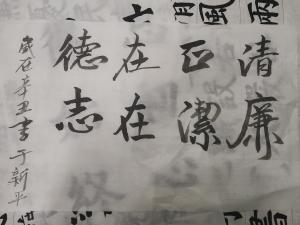 清廉
正潔
在在
德志
歲在辛丑書于新平